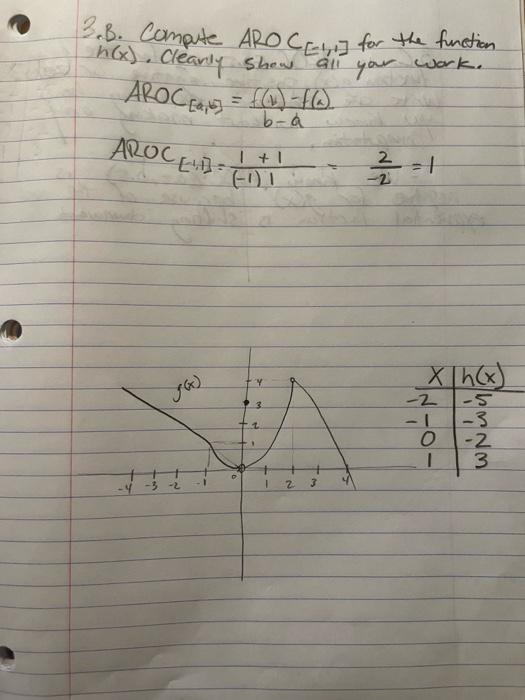 3.B. Compute AROC[-1,1] for the function
h(x). Clearly show all your work.
AROC[a,b] = f(b) - f(a)
b - a
AROC[-1,1] = 1 + 1 = 2 = 1
(-1) 1 -2
f(x)
4
3
2
1
-4 -3 -2 -1 0 1 2 3 4
X h(x)
-2 -5
-1 -3
0 -2
1 3